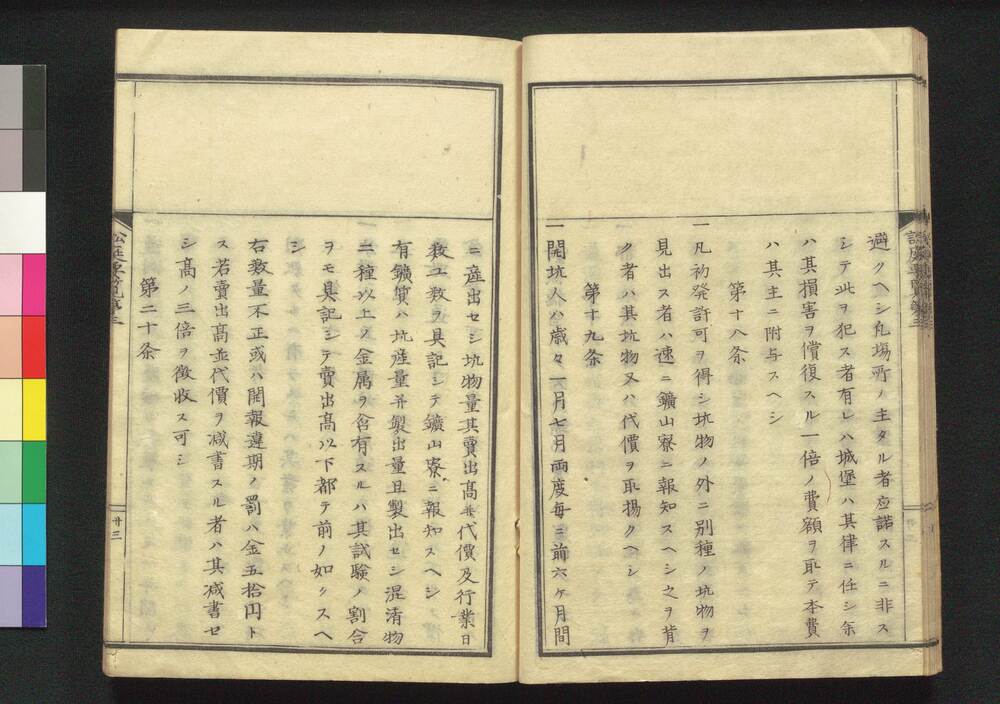 避クヘシ凢場所ノ主タル者応諾スルニ非ス
シテ此ヲ犯ス者有レハ城堡ハ其律ニ任シ余
ハ其損害ヲ償復スル一倍ノ費額ヲ取テ本費
ハ其主ニ附与スヘシ
第十八条
一凡初発許可ヲ得シ坑物ノ外ニ別種ノ坑物ヲ
見出ス者ハ速ニ鑛山寮ニ報知スヘシ之ヲ背
ク者ハ其坑物又ハ代價ヲ取揚クヘシ
第十九条
一開坑人ハ歳々一月七月両度毎ニ前六ケ月間
ニ産出セシ坑物量其賣出高並代價及行業日
数工数ヲ具記シテ鑛山寮ニ報知スヘシ
有鑛質ハ坑産量并製出量且製出セシ混淆物
ニ二種以上ノ金属ヲ含有スルハ其試験ノ割合
ヲモ具記シテ賣出高以下都テ前ノ如クスヘ
シ
右数量不正或ハ開報違期ノ罰ハ金五拾円ト
ス若賣出高並代價ヲ减書スル者ハ其减書セ
シ高ノ三倍ヲ徴收ス可シ
第二十条
廿三